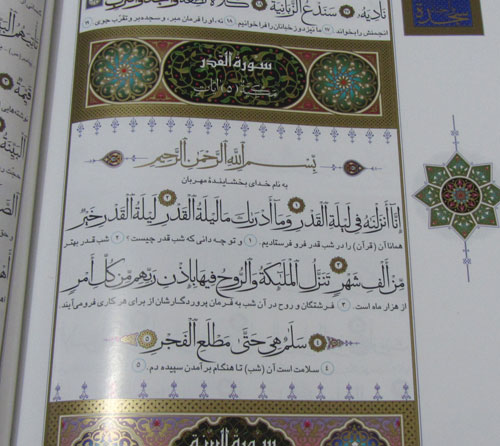 نَادِيَهُ ۝ سَنَدْعُ الزَّبَانِيَةَ ۝ كَلَّا
انجمنش را بخواند ۱۷ ما نیز دوزخبانان را فراخوانیم ۱۸ نه، او را فرمان مبر، و سجده بر و تقرّب جوی ۱۹
سجدة
سورة القدر
مكية (٥) آيات
بِسْمِ اللَّهِ الرَّحْمَٰنِ الرَّحِيمِ
به نام خدای بخشایندهٔ مهربان
إِنَّا أَنْزَلْنَاهُ فِي لَيْلَةِ الْقَدْرِ ۱ وَمَا أَدْرَاكَ مَا لَيْلَةُ الْقَدْرِ ۲ لَيْلَةُ الْقَدْرِ خَيْرٌ
همانا آن (قرآن) را در شب قدر فرو فرستادیم. ۱ و تو چه دانی که شب قدر چیست؟ ۲ شب قدر بهتر
مِنْ أَلْفِ شَهْرٍ ۳ تَنَزَّلُ الْمَلَائِكَةُ وَالرُّوحُ فِيهَا بِإِذْنِ رَبِّهِمْ مِنْ كُلِّ أَمْرٍ
از هزار ماه است. ۳ فرشتگان و روح در آن شب به فرمان پروردگارشان از برای هر کاری فرو می‌آیند
۴ سَلَامٌ هِيَ حَتَّىٰ مَطْلَعِ الْفَجْرِ ۵
۴ سلامت است آن (شب) تا هنگام برآمدن سپیده دم. ۵
سورة البينة